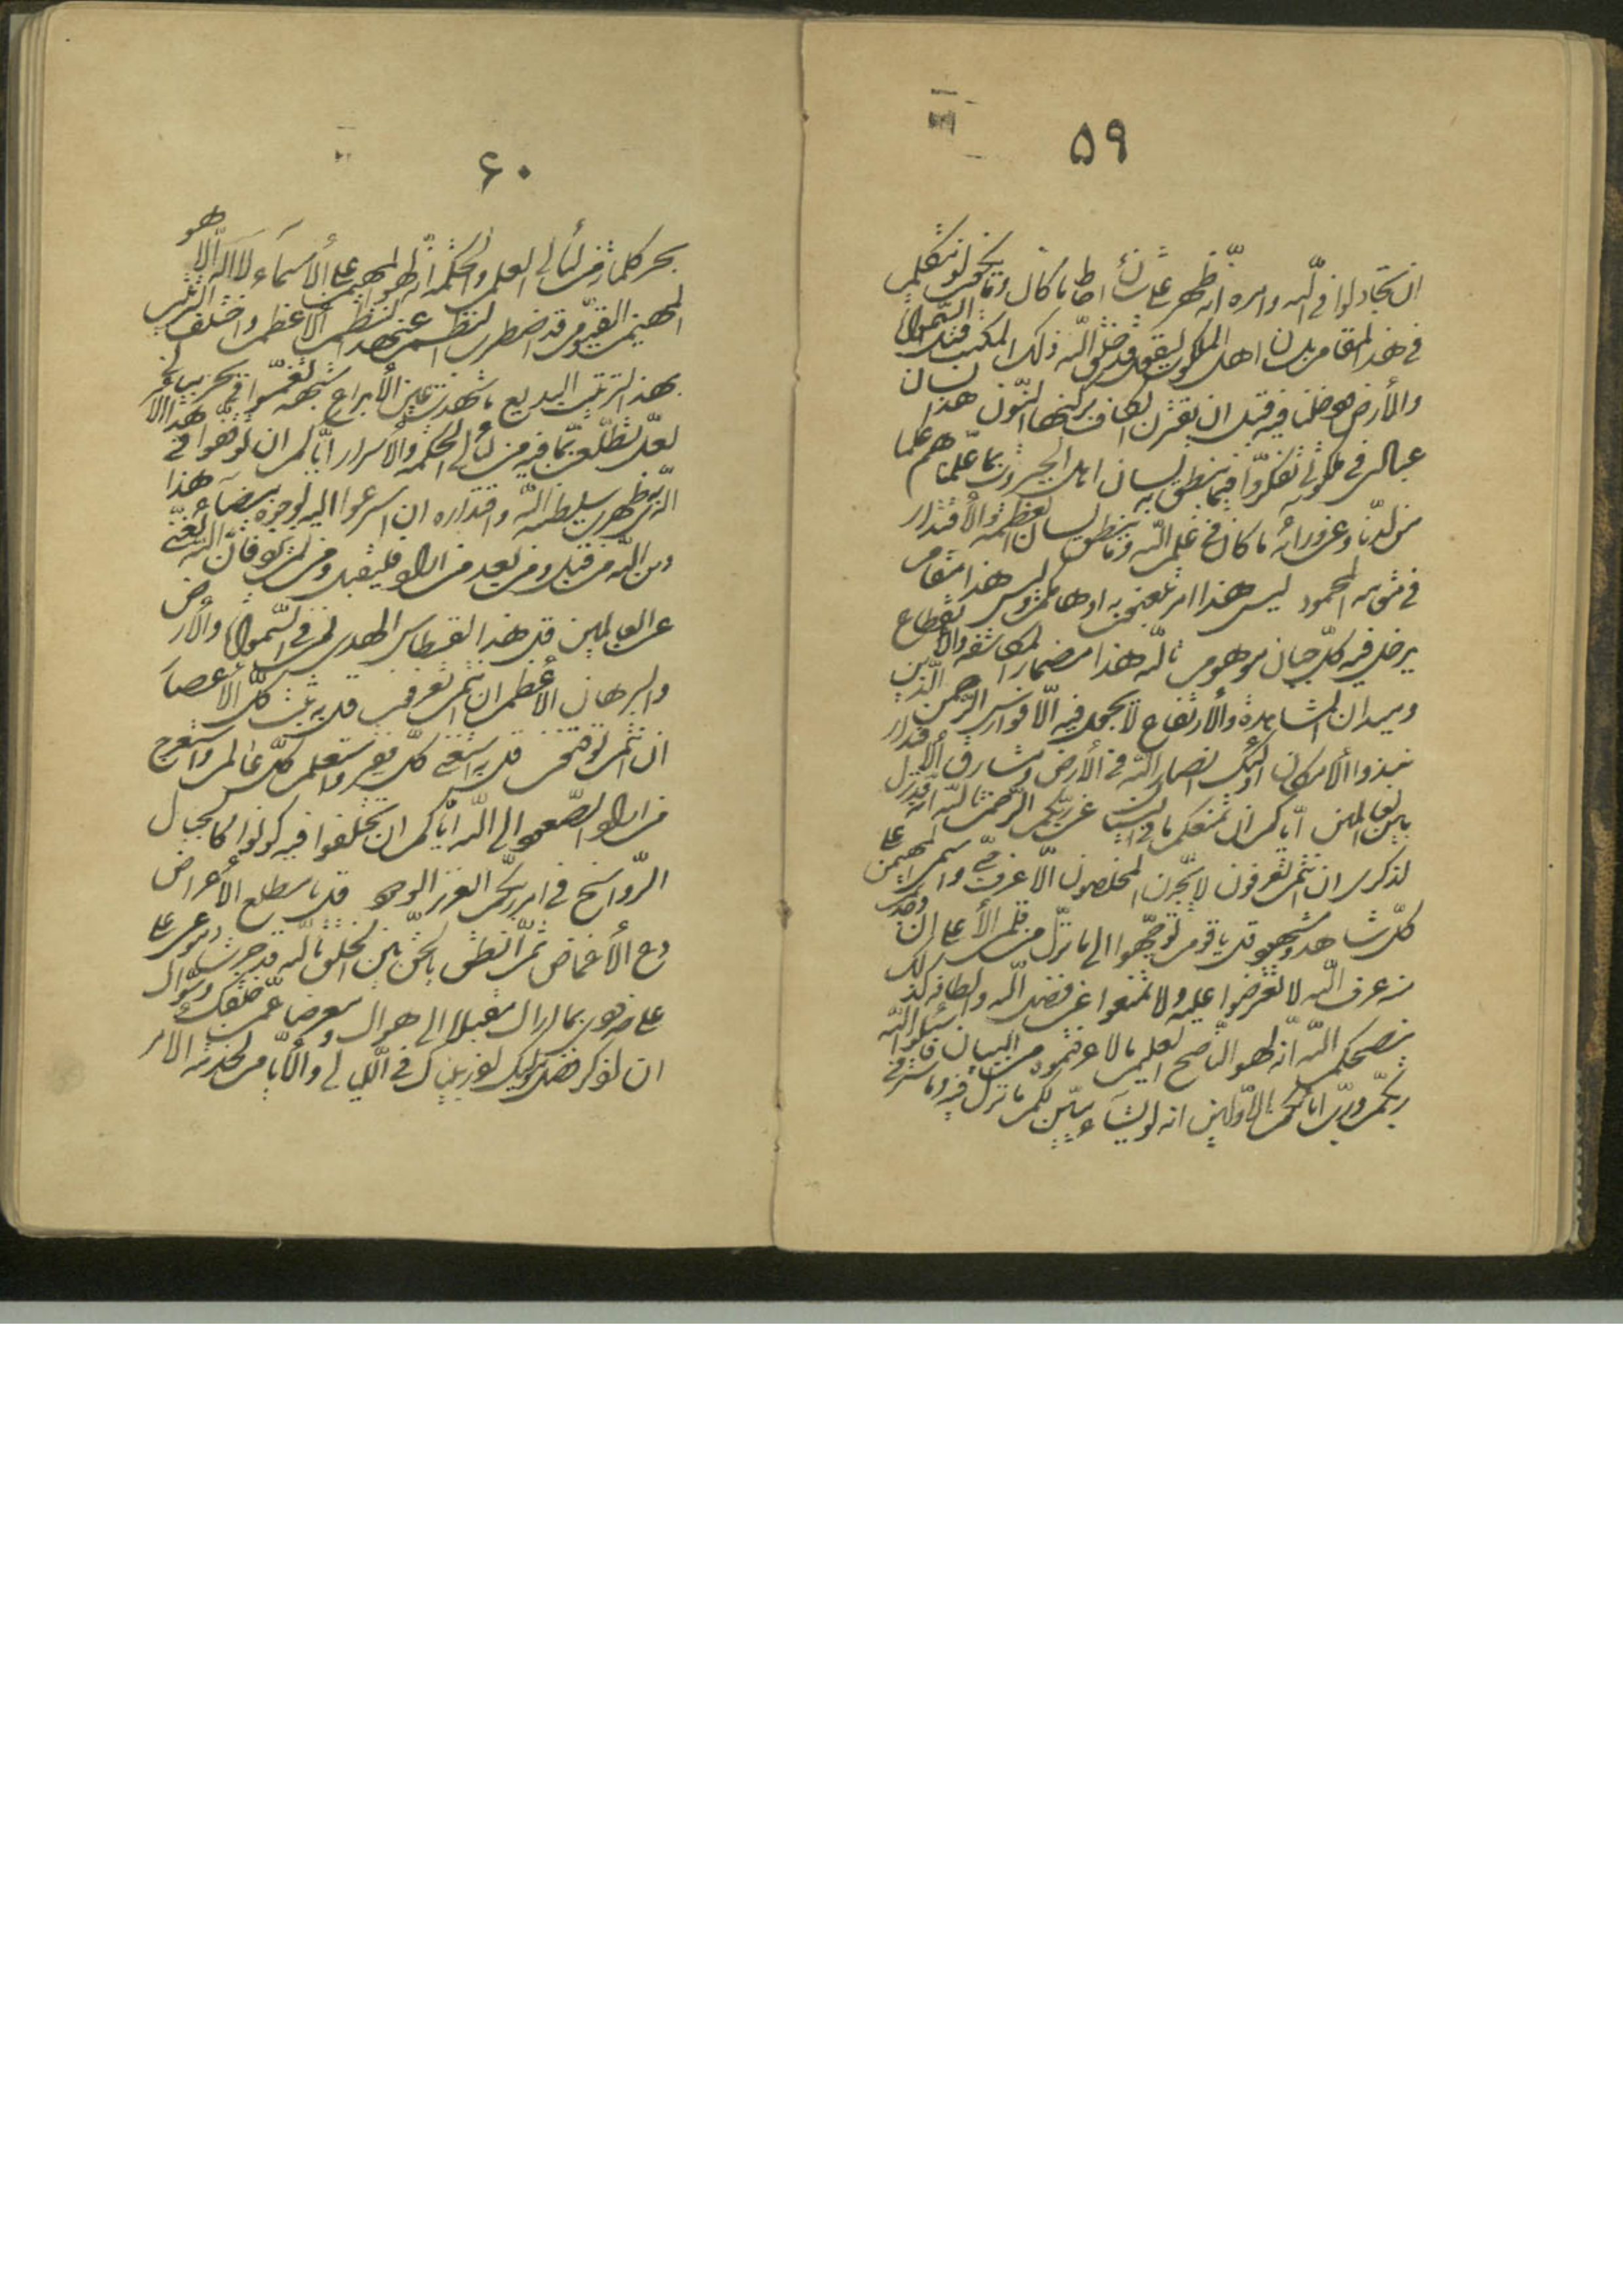 ٥٩
ان تجادلوا فى اللّه وامره انّه ظهر على شأن احاط ما كان وما يكون لو نتكلّم
فى هذا المقام بلسان اهل الملكوت ليقول قد خلق اللّه ذلك المكتب قبل خلق السّموات
والأرض ودخلنا فيه قبل ان يقترن الكاف بركنها النّون هذا لسان
عبادى فى ملكوتى تفكّروا فيما ينطق به لسان اهل الجبروت بما علّمناهم علما
من لدنّا وعن ورائه ما كان فى علم اللّه وما ينطق لسان العظمة والأقتدار
فى مقامه المحمود ليس هذا امر تلعبون به اوهامكم وليس هذا مقام
يدخل فيه كلّ جبان موهوم تاللّه هذا مضمار المكاشفة والأنقطاع
وميدان المشاهدة والأرتفاع لا يجول فيه الّا فوارس الرّحمن الّذين
نبذوا الأمكان اولئك انصار اللّه فى الأرض ومشارق الأقتدار
بين العالمين ايّاكم ان يمنعكم ما فى البيان عن ربّكم الرّحمن تاللّه انّه قد نزّل
لذكرى ان انتم تعرفون لا يجد منه المخلصون الّا عرف حبّى واسمى المهيمن على
كلّ شاهد ومشهود قل يا قوم توجّهوا الى ما نزّل من قلمى الأعلى ان وجدتم
منه عرف اللّه لا تعترضوا عليه ولا تمنعوا عن فضل اللّه والطافه كذلك
ينصحكم اللّه انّه لهو النّاصح العليم ما لا عرفتموه من البيان فاسئلوا اللّه
ربّكم وربّ آبائكم الأوّلين انّه لو يشاء يبيّن لكم ما نزّل فيه وما ستر فى
۶۰
بحر كلماته من لئالئ العلم والحكمة انّه لهو المهيمن على الأسماء لا اله الّا هو
المهيمن القيّوم قد اضطرب النّظم من هذا النّظم الأعظم واختلف التّرتيب
بهذا البديع الّذى ما شهدت عين الأبداع شبهه اغتمسوا فى بحر بيانى
لعلّ تطّلعون بما فيه من لئالئ الحكمة والأسرار ايّاكم ان توقّفوا فى هذا الأمر
الّذى به ظهرت سلطنة اللّه واقتداره ان اسرعوا اليه بوجوه بيضاء هذا
دين اللّه من قبل ومن بعد من اراد فليقبل ومن لم يرد فانّ اللّه لغنىّ
عن العالمين قل هذا القسطاس الهدى لمن فى السّموات والأرض
والبرهان الأعظم ان انتم تعرفون قل به ثبت كلّ حجّة فى الأعصار
ان انتم توقنون قل به استغنى كلّ فقير وتعلّم كلّ عالم واستعرج
من اراد الصّعود الى اللّه ايّاكم ان تختلفوا فيه كونوا كالجبال
الرّواسخ فى امر ربّكم العزيز الودود قل يا مطلع الأعراض
دع الأغماض ثمّ انطق بالحقّ بين الخلق تاللّه قد جرت دموعى على
خدودى بما اراك مقبلا الى هواك ومعرضا عمّن خلقك وسوّاك
ان اذكر فضل مولاك اذ ربّيناك فى اللّيالى والأيّام لخدمة الأمر